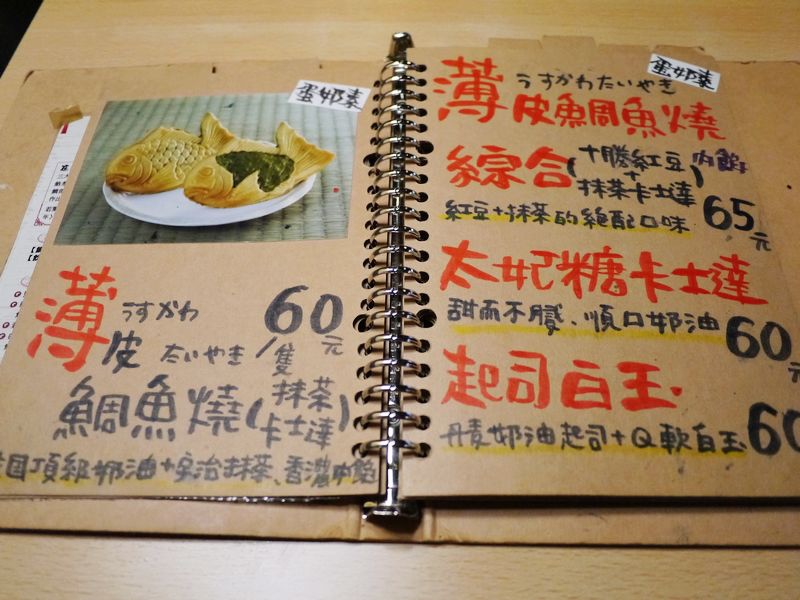 蛋奶素
薄皮 うすかわ たいやき
60元/隻
鯛魚燒(抹茶卡士達)
國頂級奶油+宇治抹茶、香濃內餡
蛋奶素
うすかわたいやき
薄皮鯛魚燒
綜合(十勝紅豆+抹茶卡士達)內餡
紅豆+抹茶的絕配口味 65元
太妃糖卡士達
甜而不膩、順口奶油 60元
起司白玉
丹麥奶油起司+Q軟白玉 60